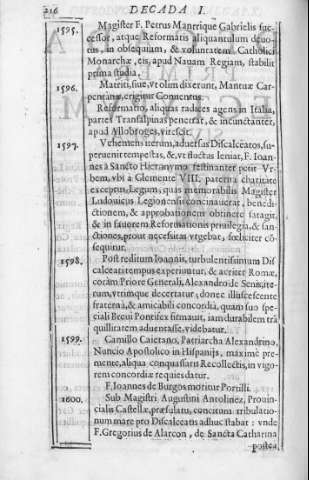 216 DECADA I.
1595. Magister F. Petrus Manrique Gabrielis suc-
cessor, atque Reformatis aliquantulum deuo-
tus, in obsequium, & voluntatem Catholici
Monarchæ, eis, apud Nauam Regiam, stabilit
prima studia.
1596. Matriti, siue, vt olim dixerunt, Mantuæ Car-
pentanæ, erigitur Conuentus.
Reformatio, aliquas radices agens in Italia,
partes Transalpinas penetrat, & incunctanter,
apud Allobroges, virescit.
1597. Vehemens iterum, aduersus Discalceatos, su-
peruenit tempestas, &, vt fluctus leniat, F. Ioan-
nes à Sancto Hieronymo festinanter petit Vr-
bem, vbi à Clemente VIII. paterna charitate
exceptus, Legum, quas memorabilis Magister
Ludouicus Legionensis concinauerat, benedi-
ctionem, & approbationem obtinere satagit,
& in fauorem Reformationis priuilegia, & san-
ctiones, prout necessitas vrgebat, fœliciter cõ-
sequitur.
1598. Post reditum Ioannis, turbulentissimum Dis
calceati tempus experiuntur, & acriter Romæ,
coràm Priore Generali, Alexandro de Senis, ite-
rum, vtrimque decertatur, donec illuscescente
fraterna, & amicabili concordia, quam suo spe-
ciali Breui Pontifex firmauit, iam durabilem trã
quillitatem aduentasse, videbatur.
1599. Camillo Caietano, Patriarcha Alexandrino,
Nuncio Apostolico in Hispanijs, maximè pre-
mente, aliqua conquassatis Recollectis, in vigo-
rem concordiæ requies datur.
F. Ioannes de Burgos moritur Portilli.
1600. Sub Magistri Augustini Antolinez, Prouin-
cialis Castellæ, præsulatu, concitum tribulatio-
num mare pro Discalceatis adhuc stabat: vnde
F. Gregorius de Alarcon, de Sancta Catharina
postea,